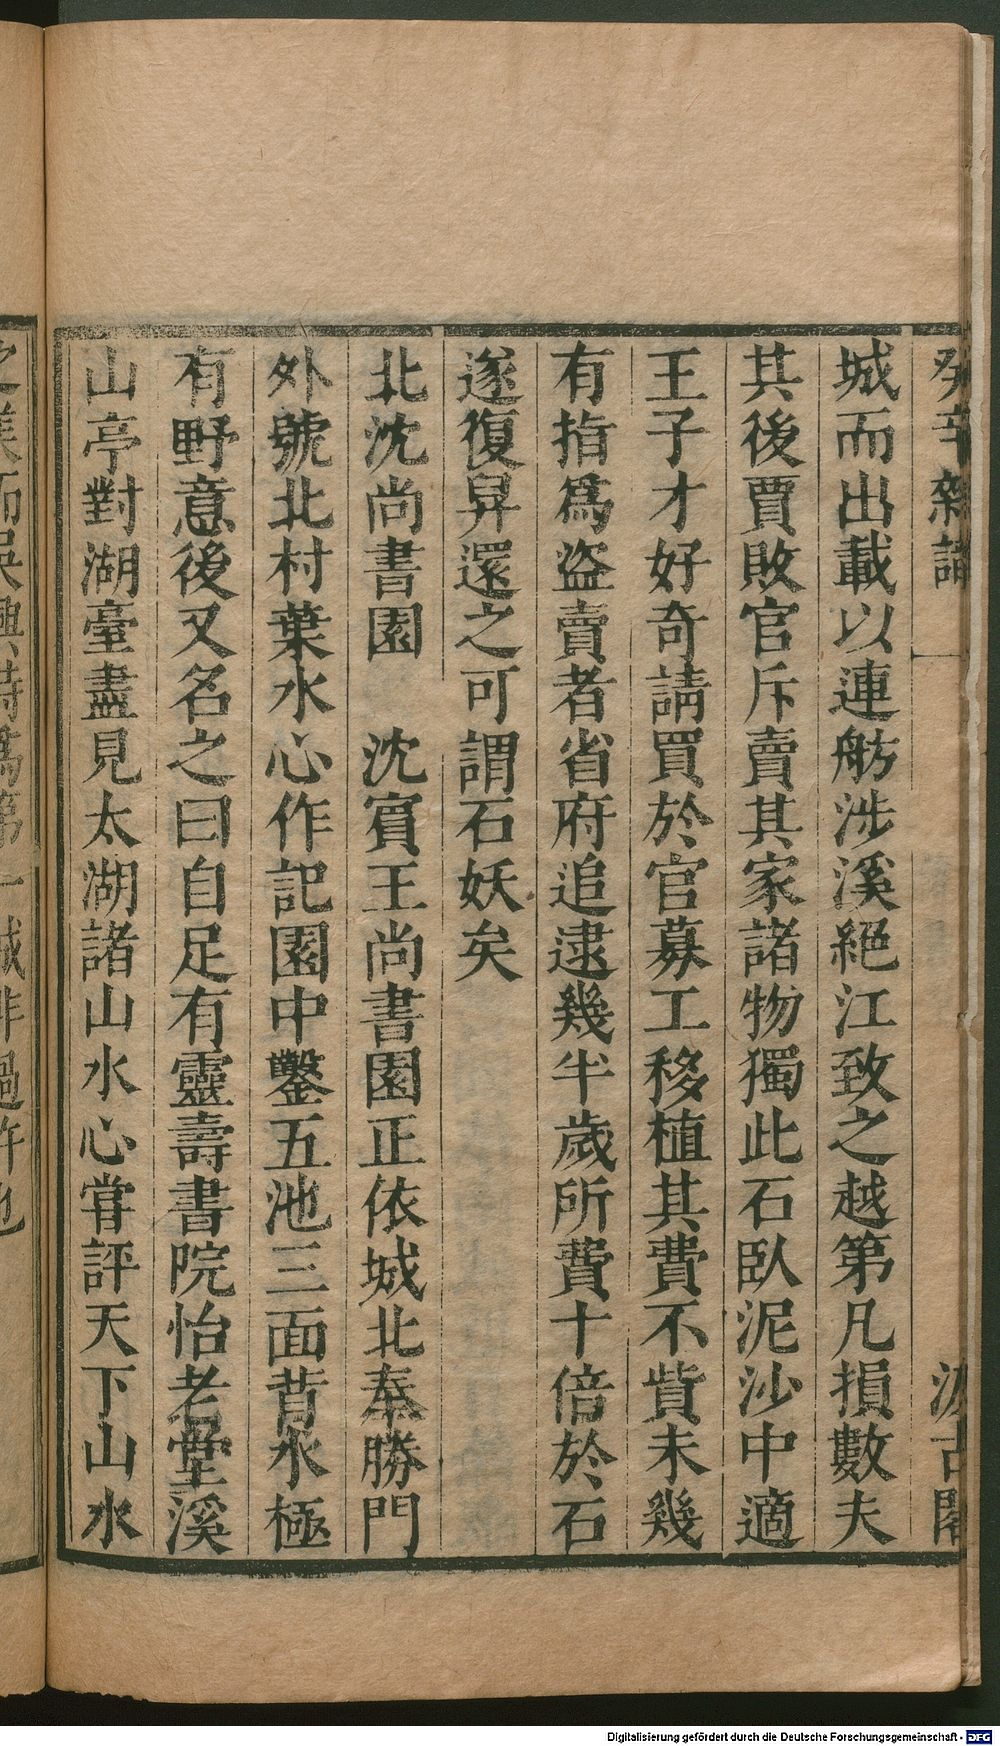 癸辛雜識
汲古閣
城而出載以連舫涉溪絕江致之越第凡損數夫
其後賈敗官斥賣其家諸物獨此石臥泥沙中適
王子才好奇請買於官募工移植其費不貲未幾
有指爲盜賣者省府追逮幾半歲所費十倍於石
遂復舁還之可謂石妖矣
北沈尚書園　沈賓王尚書園正依城北奉勝門
外號北村葉水心作記園中鑿五池三面背水極
有野意後又名之曰自足有靈壽書院怡老堂溪
山亭對湖臺盡見太湖諸山水心甞評天下山水
之美而吳興特爲第一誠非過許也
Digitalisierung gefördert durch die Deutsche Forschungsgemeinschaft - DFG